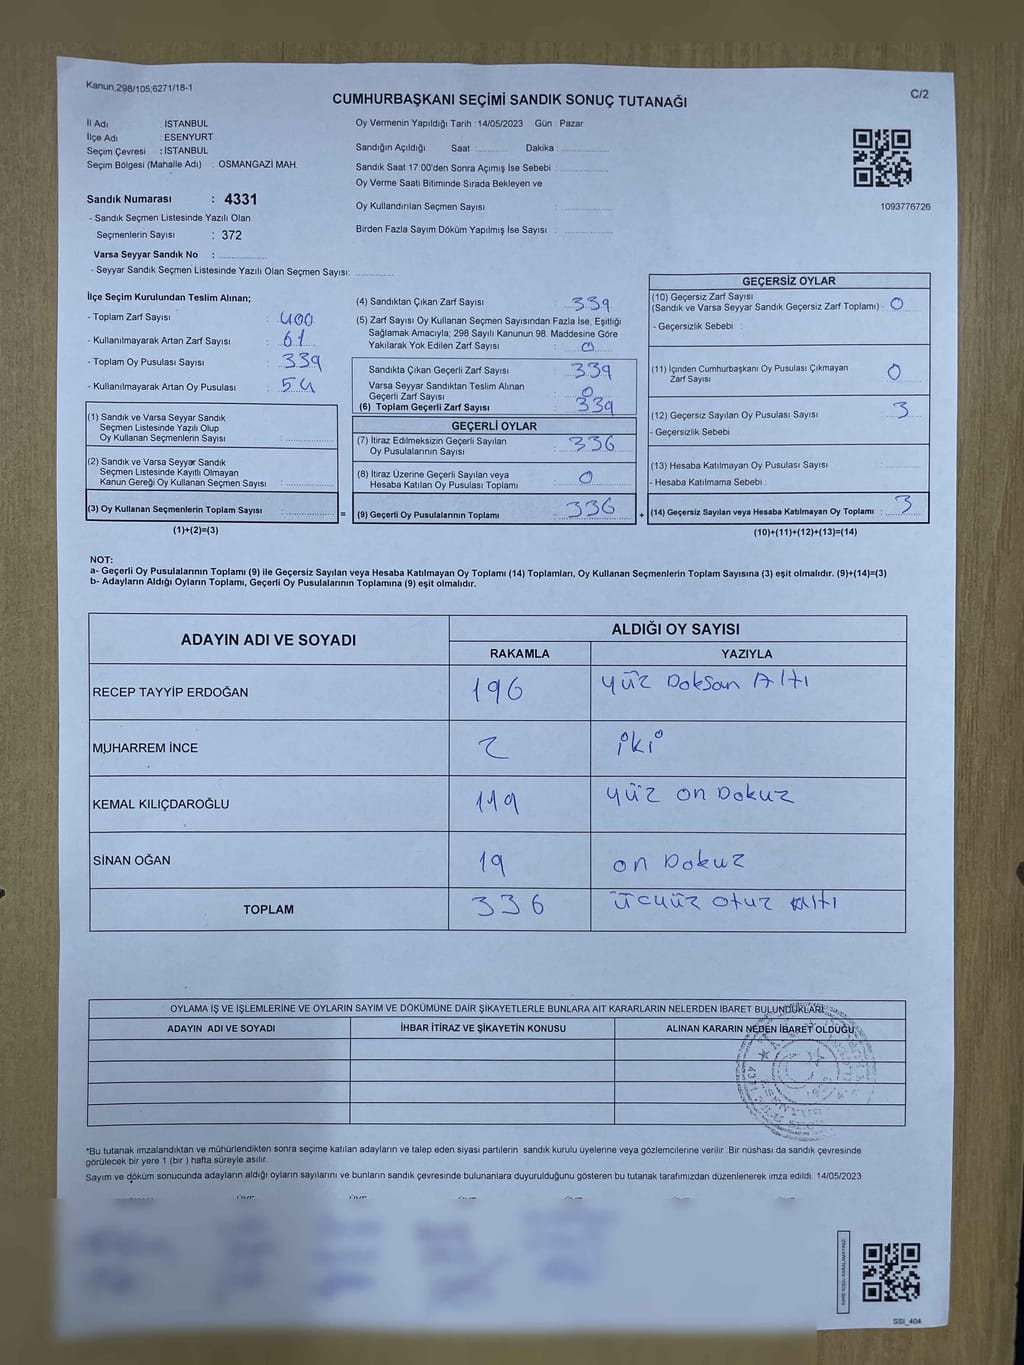 Kanun,298/105,6271/18-1
C/2
CUMHURBAŞKANI SEÇİMİ SANDIK SONUÇ TUTANAĞI
İl Adı : İSTANBUL
İlçe Adı : ESENYURT
Seçim Çevresi : İSTANBUL
Seçim Bölgesi (Mahalle Adı) : OSMANGAZİ MAH.
Sandık Numarası : 4331
- Sandık Seçmen Listesinde Yazılı Olan
Seçmenlerin Sayısı : 372
Varsa Seyyar Sandık No : ...............
- Seyyar Sandık Seçmen Listesinde Yazılı Olan Seçmen Sayısı: ............
Oy Vermenin Yapıldığı Tarih : 14/05/2023 Gün : Pazar
Sandığın Açıldığı Saat :........... Dakika : ...............
Sandık Saat 17:00'den Sonra Açımış İse Sebebi : ...............
Oy Verme Saati Bitiminde Sırada Bekleyen ve
Oy Kullandırılan Seçmen Sayısı : ...............
Birden Fazla Sayım Döküm Yapılmış İse Sayısı : ...............
1093776726
İlçe Seçim Kurulundan Teslim Alınan;
- Toplam Zarf Sayısı : 400
- Kullanılmayarak Artan Zarf Sayısı : 61
- Toplam Oy Pusulası Sayısı : 339
- Kullanılmayarak Artan Oy Pusulası : 54
(1) Sandık ve Varsa Seyyar Sandık
Seçmen Listesinde Yazılı Olup
Oy Kullanan Seçmenlerin Sayısı : ...............
(2) Sandık ve Varsa Seyyar Sandık
Seçmen Listesinde Kayıtlı Olmayan
Kanun Gereği Oy Kullanan Seçmen Sayısı : ...............
(3) Oy Kullanan Seçmenlerin Toplam Sayısı : ............... =
(1)+(2)=(3)
(4) Sandıktan Çıkan Zarf Sayısı : 339
(5) Zarf Sayısı Oy Kullanan Seçmen Sayısından Fazla İse, Eşitliği
Sağlamak Amacıyla; 298 Sayılı Kanunun 98. Maddesine Göre
Yakılarak Yok Edilen Zarf Sayısı : 0
Sandıkta Çıkan Geçerli Zarf Sayısı : 339
Varsa Seyyar Sandıktan Teslim Alınan
Geçerli Zarf Sayısı : 0
(6) Toplam Geçerli Zarf Sayısı : 339
GEÇERLİ OYLAR
(7) İtiraz Edilmeksizin Geçerli Sayılan
Oy Pusulalarının Sayısı : 336
(8) İtiraz Üzerine Geçerli Sayılan veya
Hesaba Katılan Oy Pusulası Toplamı : 0
(9) Geçerli Oy Pusulalarının Toplamı : 336 +
GEÇERSİZ OYLAR
(10) Geçersiz Zarf Sayısı
(Sandık ve Varsa Seyyar Sandık Geçersiz Zarf Toplamı) : 0
- Geçersizlik Sebebi :
(11) İçinden Cumhurbaşkanı Oy Pusulası Çıkmayan
Zarf Sayısı : 0
(12) Geçersiz Sayılan Oy Pusulası Sayısı : 3
- Geçersizlik Sebebi
(13) Hesaba Katılmayan Oy Pusulası Sayısı : ...............
- Hesaba Katılmama Sebebi :
(14) Geçersiz Sayılan veya Hesaba Katılmayan Oy Toplamı : 3
(10)+(11)+(12)+(13)=(14)
NOT:
a- Geçerli Oy Pusulalarının Toplamı (9) ile Geçersiz Sayılan veya Hesaba Katılmayan Oy Toplamı (14) Toplamları, Oy Kullanan Seçmenlerin Toplam Sayısına (3) eşit olmalıdır. (9)+(14)=(3)
b- Adayların Aldığı Oyların Toplamı, Geçerli Oy Pusulalarının Toplamına (9) eşit olmalıdır.
ADAYIN ADI VE SOYADI ALDIĞI OY SAYISI
RAKAMLA YAZIYLA
RECEP TAYYİP ERDOĞAN 196 yüz Doksan Altı
MUHARREM İNCE 2 iki
KEMAL KILIÇDAROĞLU 119 yüz on Dokuz
SİNAN OĞAN 19 on Dokuz
TOPLAM 336 Ücyüz otuz Altı
OYLAMA İŞ VE İŞLEMLERİNE VE OYLARIN SAYIM VE DÖKÜMÜNE DAİR ŞİKAYETLERLE BUNLARA AİT KARARLARIN NELERDEN İBARET BULUNDUKLARI
ADAYIN ADI VE SOYADI İHBAR İTİRAZ VE ŞİKAYETİN KONUSU ALINAN KARARIN NEDEN İBARET OLDUĞU
*Bu tutanak imzalandıktan ve mühürlendikten sonra seçime katılan adayların ve talep eden siyasi partilerin sandık kurulu üyelerine veya gözlemcilerine verilir. Bir nüshası da sandık çevresinde
görülecek bir yere 1 (bir ) hafta süreyle asılır.
Sayım ve döküm sonucunda adayların aldığı oyların sayılarını ve bunların sandık çevresinde bulunanlara duyurulduğunu gösteren bu tutanak tarafımızdan düzenlenerek imza edildi. 14/05/2023
SSI_404